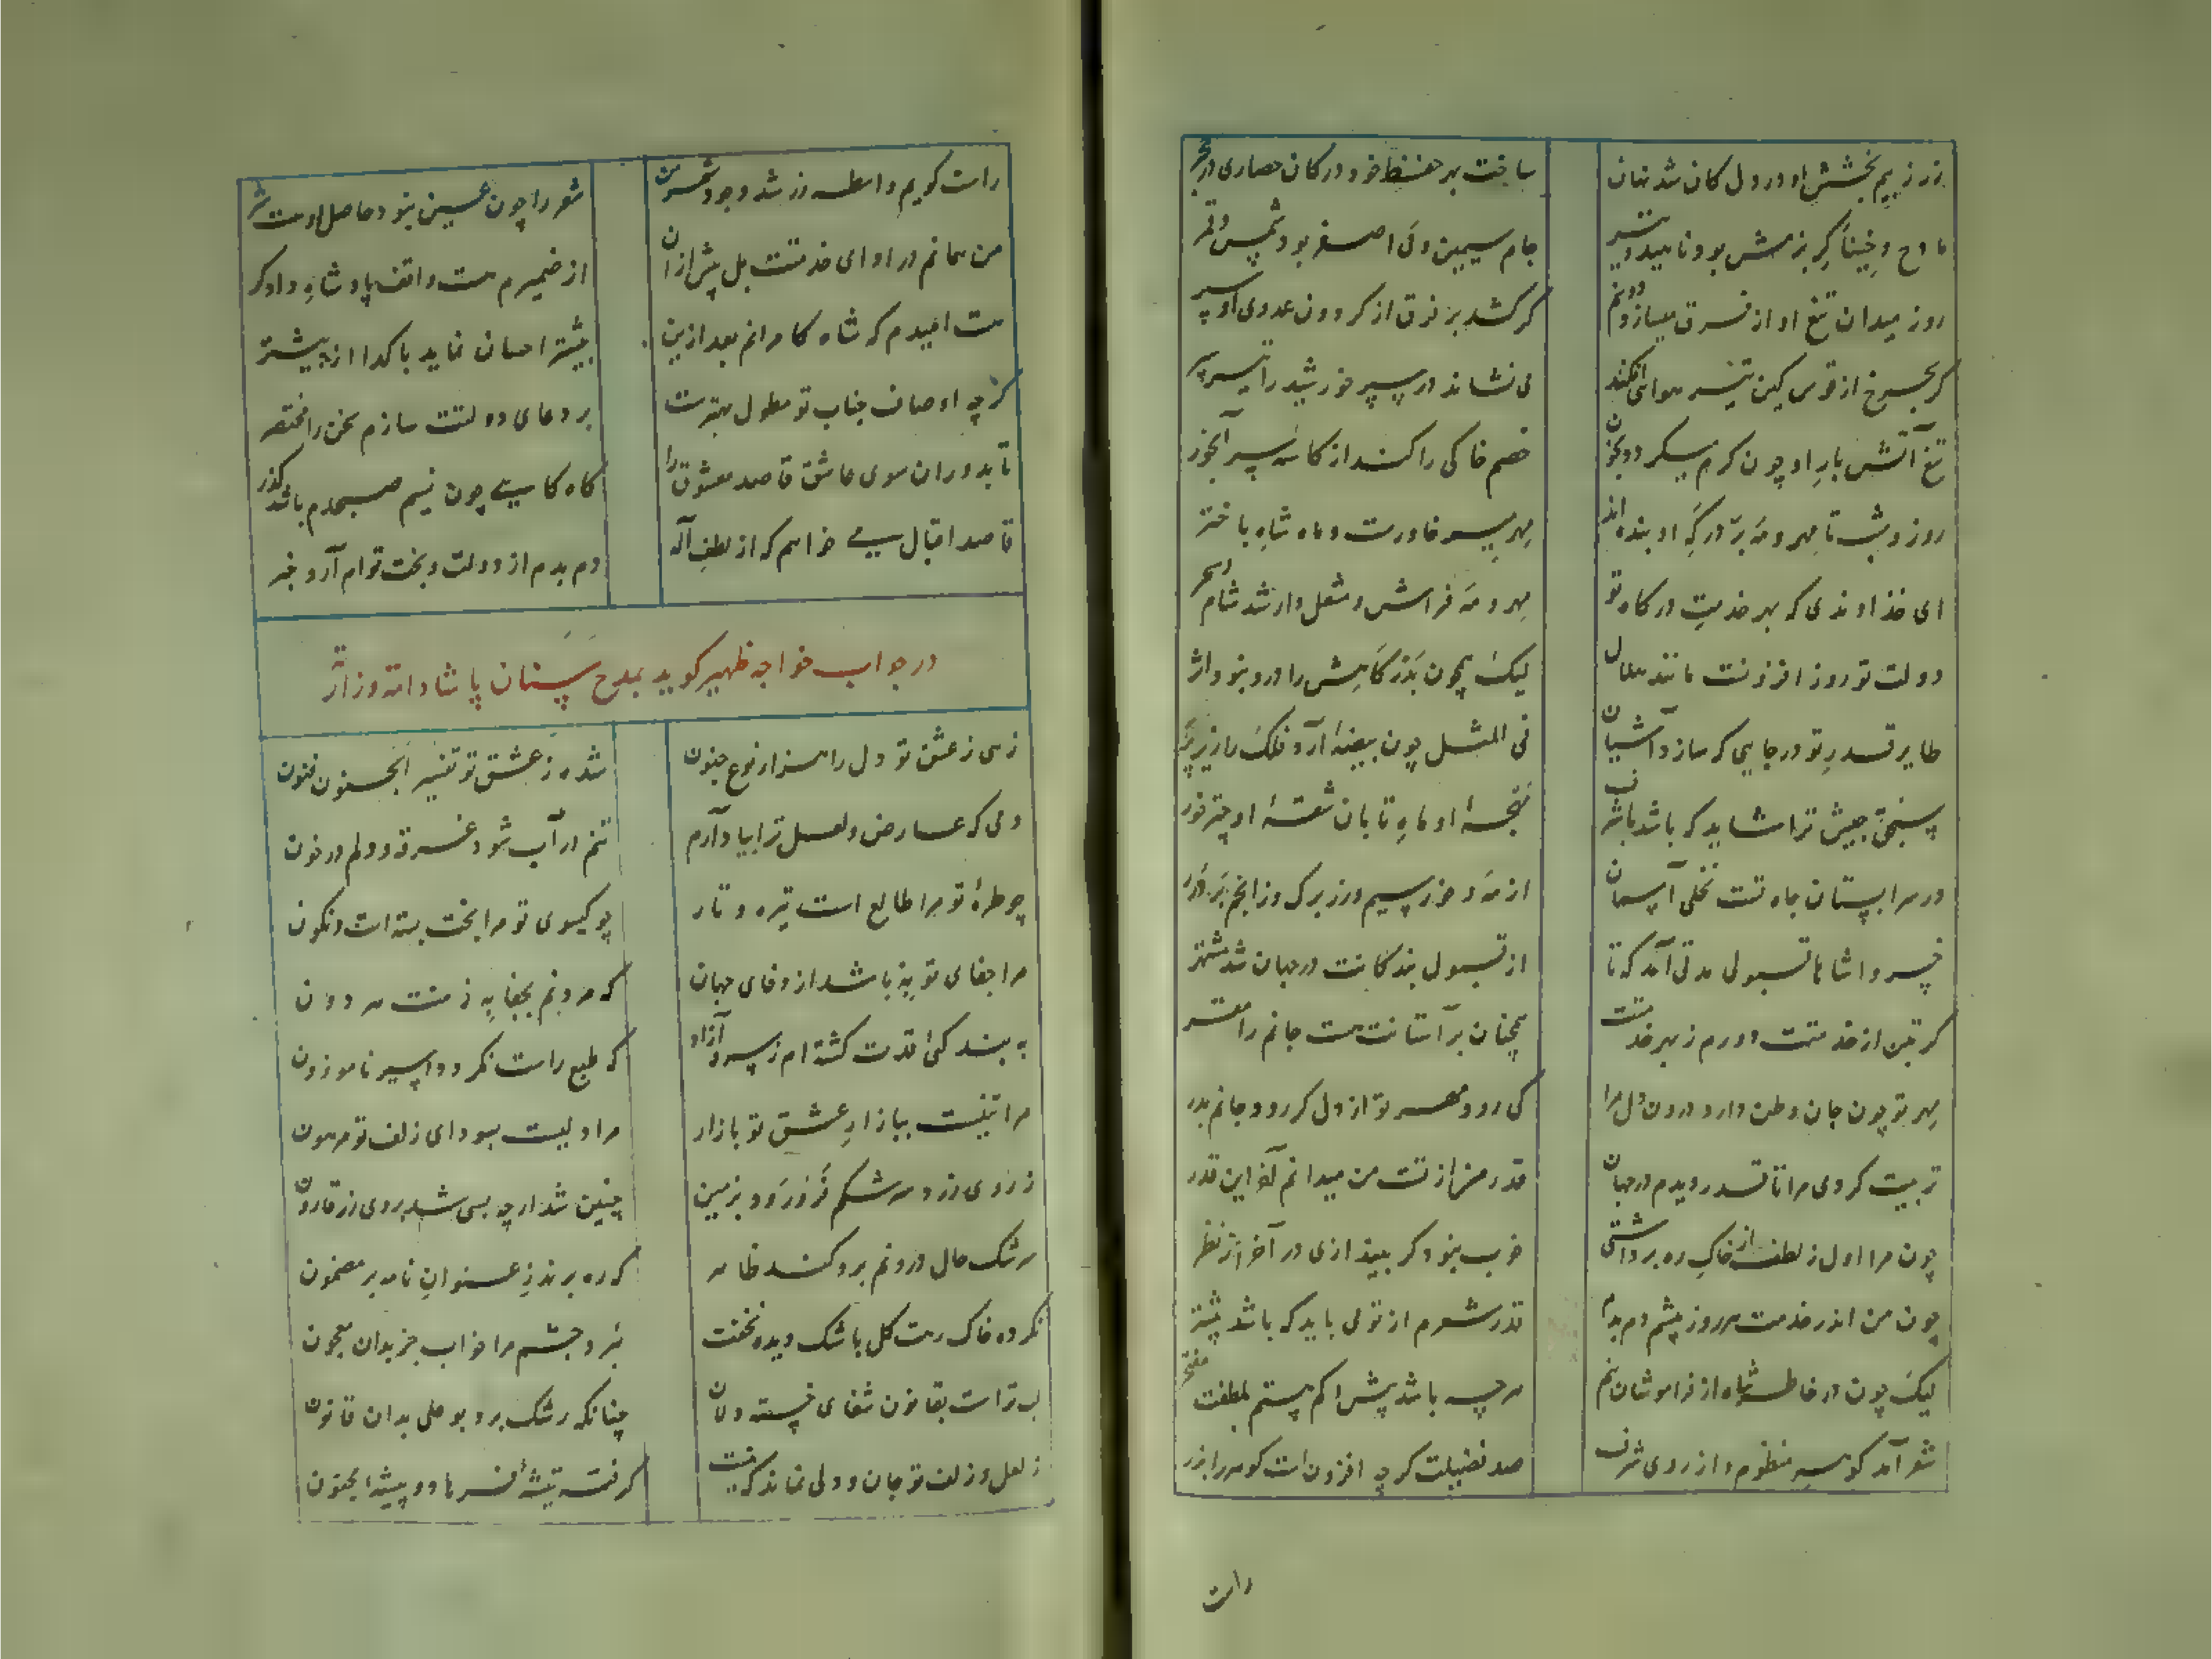 زر ز بیم بخشش او در دل کان شد نهان
ساخت بهر حفظ خود در کان حصاری از حجر
مادح و خنیاگر بزمش بود ناهید و تیر
جام سیمین و نی اصفر بود شمس و قمر
روز میدان تیغ او از فرق میسازد دو نیم
گر کشد بر فرق از گردون عدوی او سپر
گر بچرخ از قوس کین تیر هوایی افکند
می نشاند در سپهر خورشید را تیر سپر
تیغ آتش بار او چون گرم میگردد بخون
خصم خاکی را کند از کاسهٔ سر آبخور
روز و شب تا مهر و مه بر درگه او بنده اند
مهر میر خاورست و ماه شاه باختر
ای خداوندی که بهر خدمت درگاه تو
مهر و مه فراش و مشعل دار شد شام و سحر
دولت تو روز افزونست مانند هلال
لیک همچون بدر کاهش را درو نبود اثر
طایر قدر تو در جایی که سازد آشیان
فی المثل چون بیضه آرد فلک را زیر پر
سنجق جیش ترا شاید که باشد باشرف
پنجهٔ او ماه تابان شقهٔ او چتر خور
در سرابستان جاه تست نخلی آسمان
از مه و خور سیم و زر برگ وز انجم بر درر
خسروا شاها قبولی مدتی آمد که تا
از قبول بندگانت در جهان شد مشتهر
گر بتن از خدمتت دورم ز بهر خدمتت
همچنان بر آستانت هست جانم را مقر
مهر تو چون جان وطن دارد درون دل مرا
کی رود مهر تو از دل گر رود جانم بدر
تربیت کردی مرا تا قدر دیدم در جهان
قدر من از تست من میدانم آخر این قدر
چون مرا اول ز لطف از خاک ره برداشتی
خوب نبود گر بیندازی در آخر از نظر
چون من اندر خدمت هر روز بیشم دم بدم
قدر شعرم از تو می باید که باشد بیشتر
لیک چون در خاطر شاه از فراموشان نیم
هر چه باشد بیش اکم هستم بلطفت مفتخر
شعر آمد گوهر منظوم و از روی شرف
صد فضیلت گرچه افزون است گوهر را بزر
راست
راست گویم واسطه زر شد وجود شعر من
شعر را چون عین بنود حاصل اوست شر
من همانم در ادای خدمتت بل بیش از آن
از ضمیرم هست واقف پادشاه دادگر
هست امیدم که شاه کامرانم بعد ازین
بیشتر احسان نماید با گدا از پیشتر
گرچه اوصاف جناب تو مطول بهترست
بر دعای دولتت سازم سخن را مختصر
تا بدوران سوی عاشق قاصد معشوق را
گاه گاهی چون نسیم صبحدم باشد گذر
قاصد اقبال می خواهم که از لطف اله
دم بدم از دولت و بخت توام آرد خبر
در جواب خواجه ظهیر گوید بمدح سنان پاشا
زهی ز عشق تو دل را هزار نوع جنون
شده ز عشق تو تفسیر الجنون فنون
دمی که عارض و لعل ترا بیاد آرم
تنم در آب شود غرق و دلم در خون
چو طرهٔ تو مرا طالع است تیره و تار
چو گیسوی تو مرا بخت بسته است و نگون
مرا جفای تو به باشد از وفای جهان
که مردنم بجفا به ز منت هر دون
به بندگی قدت گشته ام ز سرو آزاد
که طبع راست نگردد اسیر ناموزون
مرا تنیست ببازار عشق تو بازار
مرا دلیست بسودای زلف تو مرهون
ز روی زرد سرشکم فرو رود بزمین
چنین شد ارچه بسی شد بروی زر قارون
سرشک حال درونم برو کند ظاهر
که ره برند ز عنوان نامه بر مضمون
نکرده خاک رهت کل باشک دیده نخفت
نبرد چشم مرا خواب جز بدان معجون
لب تراست بقانون شفای خسته دلان
چنانکه رشک برد بوعلی بدان قانون
ز لعل و زلف تو جان و دلی نماند که نیست
گرفته تیشهٔ فرهاد و پیشهٔ مجنون